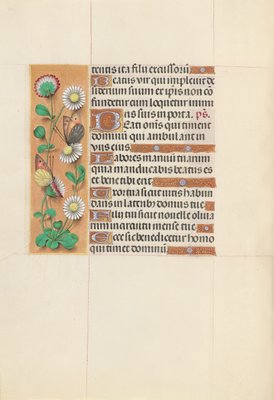 tentis ita filii excussorū
Beatus vir qui impleuit de
siderium suum ex ipsis non cō
fundetur cum loquetur inimi
cis suis in porta. ps.
Beati omnes qui timent
dominū qui ambulant in
viis eius.
Labores manuū tuarum
quia manducabis beatus es
et bene tibi erit.
Uxor tua sicut vitis habun
dans in laterib; domus tue
Filii tui sicut nouelle oliua
rum in circuitu mense tue
Ecce sic benedicetur homo
qui timet dominū.